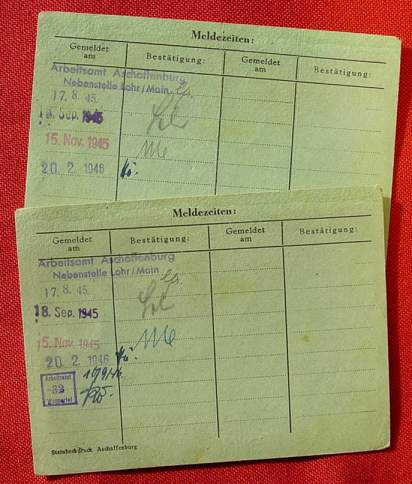 Meldezeiten:
Gemeldet am Bestätigung: Gemeldet am Bestätigung:
Arbeitsamt Aschaffenburg
Nebenstelle Lohr/Main
17. 8. 45.
18. Sep. 1945
15. Nov. 1945
20. 2. 1946
Meldezeiten:
Gemeldet am Bestätigung: Gemeldet am Bestätigung:
Arbeitsamt Aschaffenburg
Nebenstelle Lohr/Main
17. 8. 45.
18. Sep. 1945
15. Nov. 1945
20. 2. 1946
Arbeitsamt
Aschaffenburg